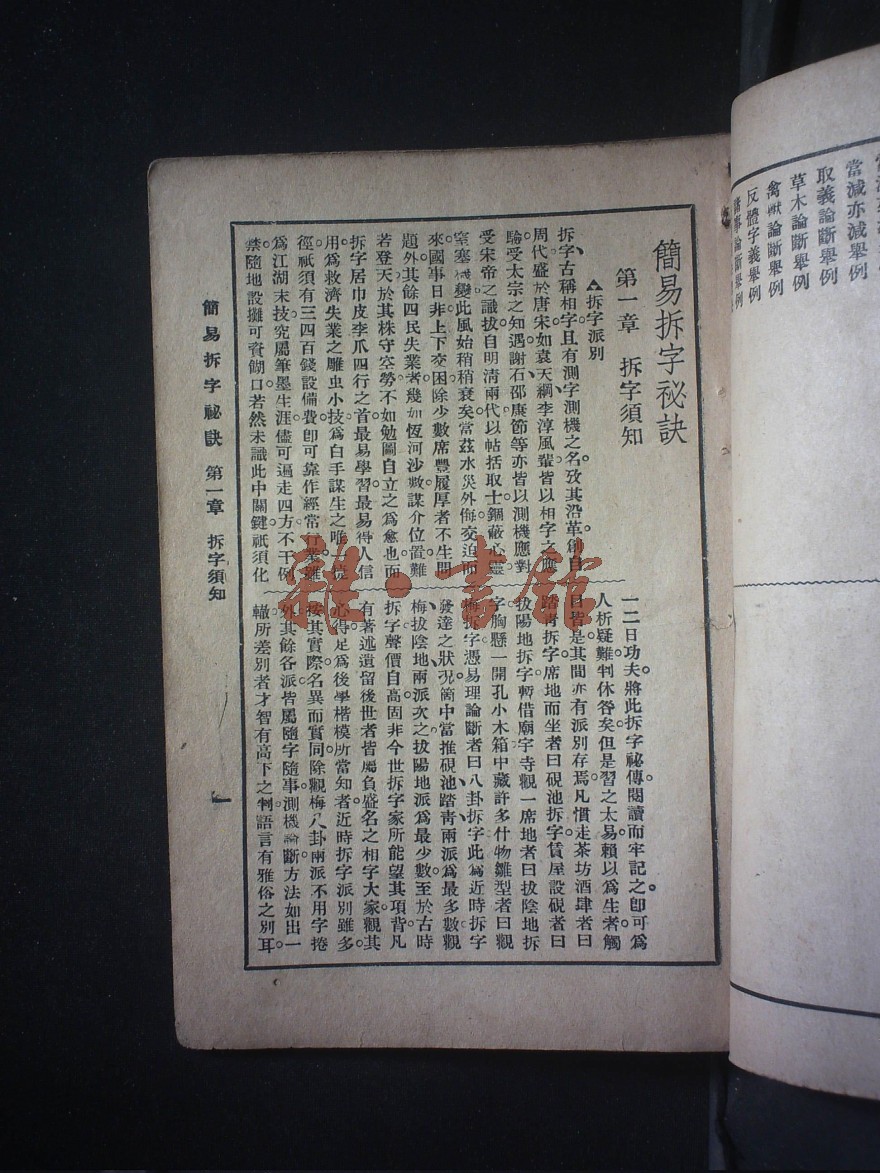 簡易拆字祕訣
第一章 拆字須知
▲拆字派別
拆字、古稱相字、且有測字測機之名。攷其沿革、創自
周代、盛於唐宋、如袁天綱李淳風輩、皆以相字之應
驗、受太宗之知遇、謝石邵康節等、亦皆以測機應對
受宋帝之識拔。自明清兩代、以帖括取士、錮蔽心靈。
窒塞機變、此風始稍稍衰矣。當茲水災外侮、交迫而
來、國事日非、上下交困、除少數席豐履厚者、不生問
題外、其餘四民失業者、幾如恆河沙數、謀介位置、難
若登天、於其株守空勞、不如勉圖自立之爲愈也。而
拆字居巾皮李爪四行之首、最易學習、最易得人信
用、爲救濟失業之雕虫小技、爲白手謀生之唯一捷
徑、祇須有三四百錢設備費、卽可靠作經常行業、雖
爲江湖末技、究屬筆墨生涯、儘可遍走四方、不干例
禁、隨地設攤、可資餬口。若然未識此中關鍵、祇須化
一二日功夫、將此拆字祕傳、閱讀而牢記之、卽可爲
人析疑難、判休咎矣。但是習之太易、賴以爲生者、觸
目皆是、其間亦有派別存焉。凡慣走茶坊酒肆者、曰
踏青拆字、席地而坐者、曰硯池拆字、賃屋設硯者、曰
拔陽地拆字、暫借廟宇寺觀一席地者、曰拔陰地拆
字、胸懸一開孔小木箱、中藏許多什物雛型者、曰觀
梅拆字、憑易理論斷者、曰八卦拆字、此爲近時拆字
發達之狀況。箇中當推硯池踏青兩派爲最多數、觀
梅拔陰地兩派次之、拔陽地派爲最少數。至於古時
拆字、聲價自高、固非今世拆字家所能望其項背、凡
有著述遺留後世者、皆屬負盛名之相字大家、觀其
心得、足爲後學楷模。所當知者、近時拆字派別雖多、
按其實際、名異而實同、除觀梅八卦兩派不用字捲
外、其餘各派、皆屬隨字隨事、測機論斷、方法如出一
轍、所差別者、才智有高下之判、語言有雅俗之別耳
簡易拆字祕訣 第一章 拆字須知
一
當減亦減舉例
取義論斷舉例
草木論斷舉例
禽獸論斷舉例
反體字義舉例
論斷舉例
雜·書館